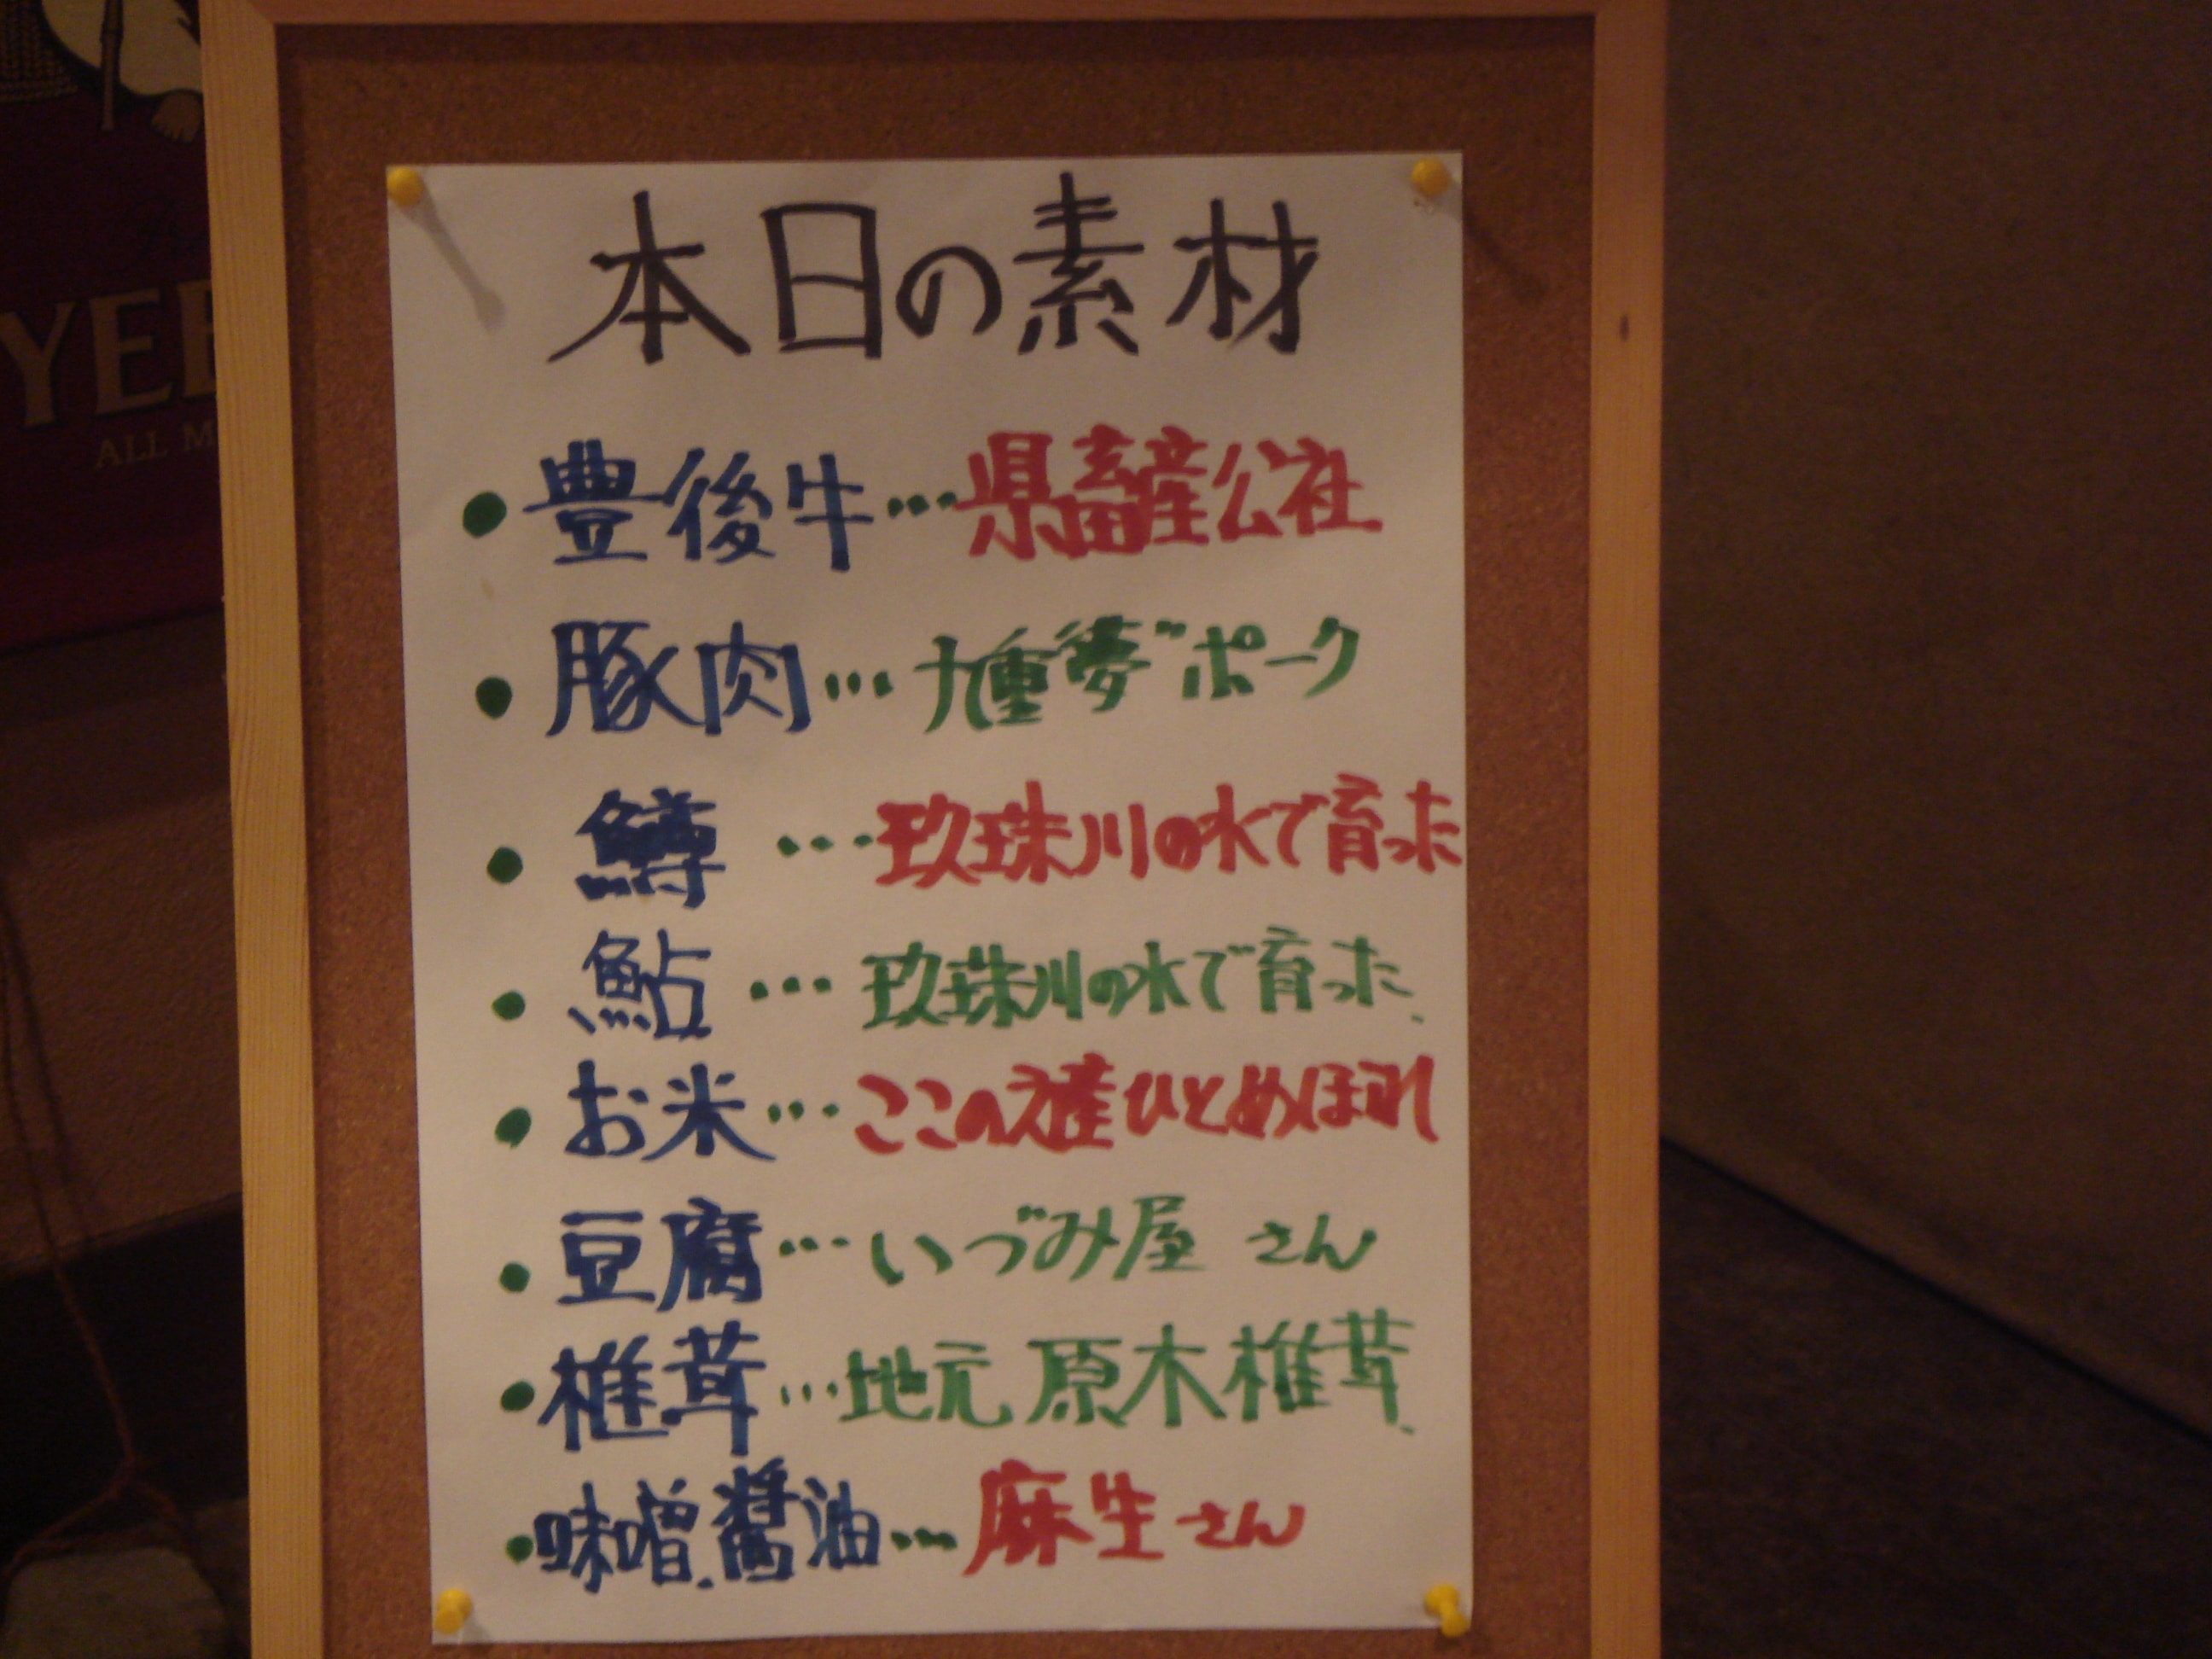 YE
ALL M
本日の素材
• 豊後牛…県畜産公社
• 豚肉…九重夢ポーク
• 鱒…玖珠川の水で育った
• 鮎…玖珠川の水で育った
• お米…ここのえ産ひとめぼれ
• 豆腐…いづみ屋さん
• 椎茸…地元原木椎茸
• 味噌.醤油…麻生さん